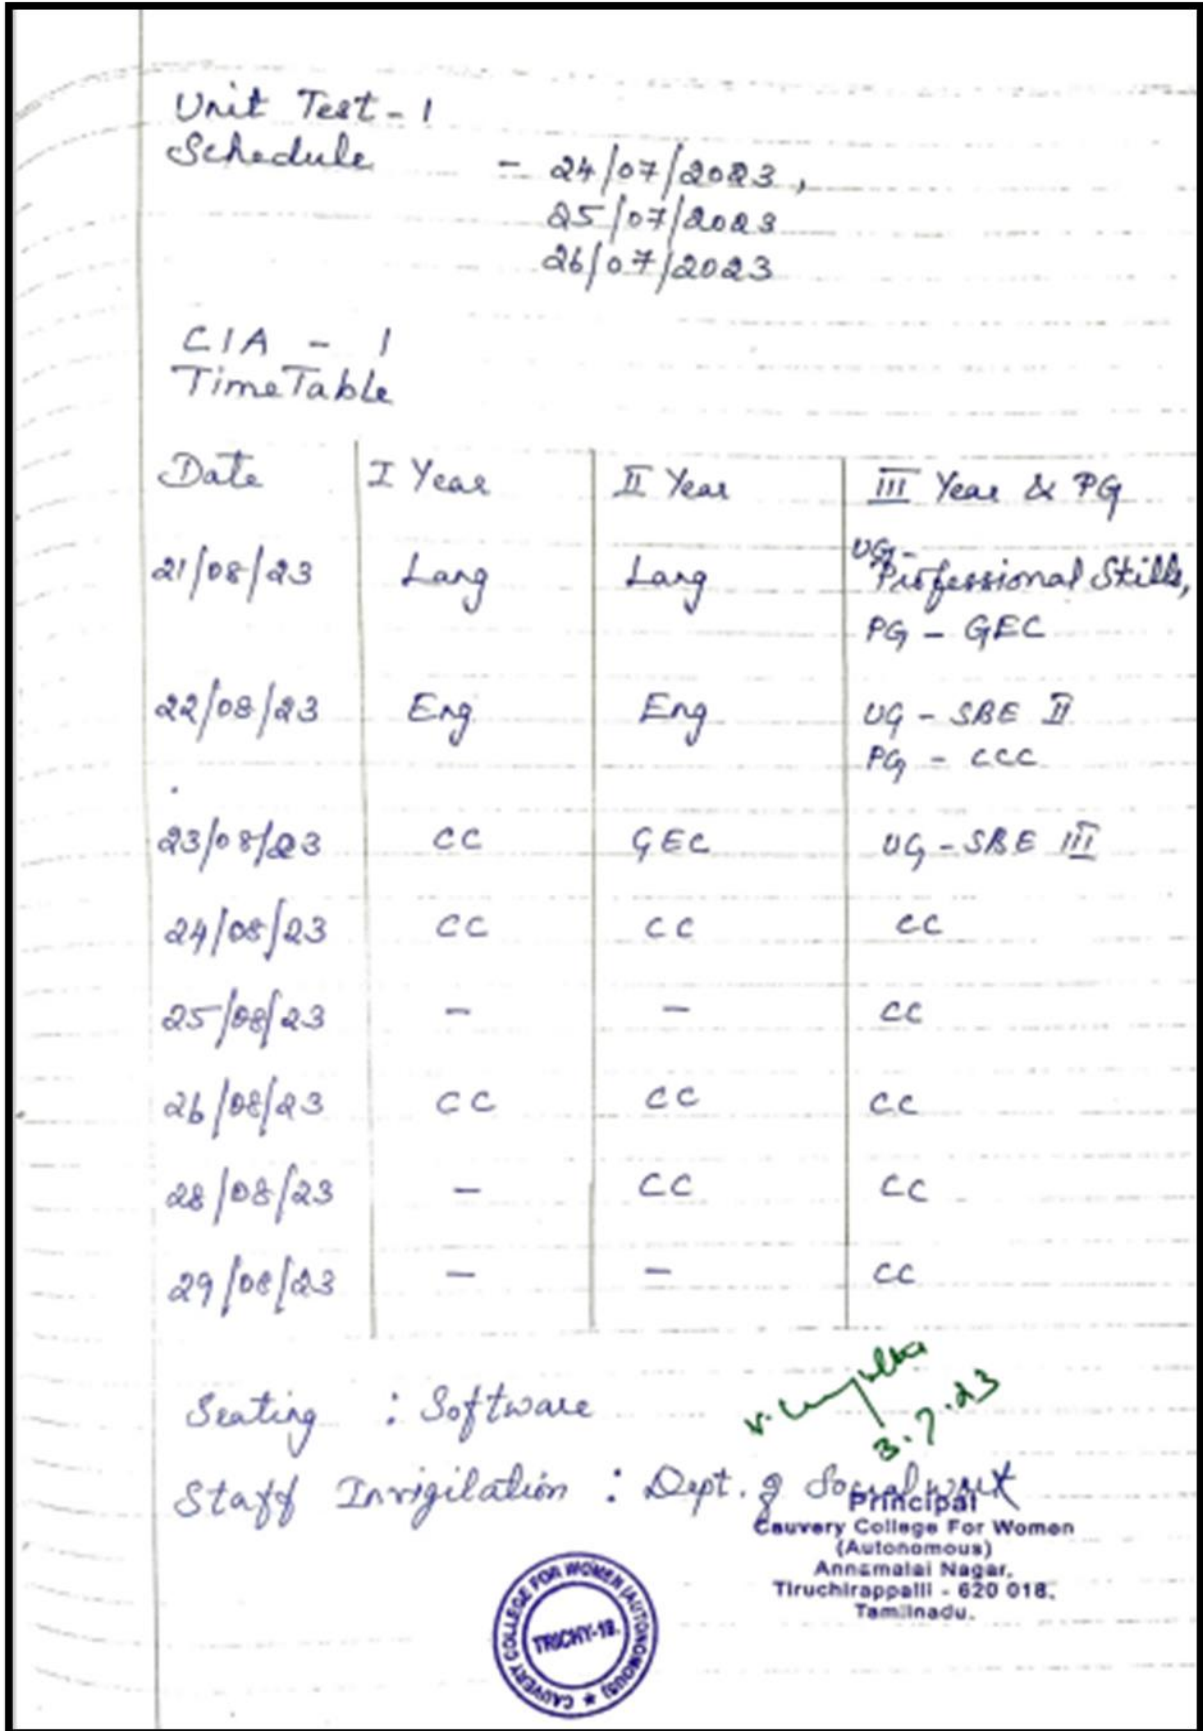 Unit Test - 1
Schedule - 24/07/2023,
25/07/2023
26/07/2023
CIA - 1
TimeTable
Date I Year II Year III Year & PG
21/08/23 Lang Lang UG- Professional Skills,
PG - GEC
22/08/23 Eng Eng UG - SBE II
PG - CCC
23/08/23 CC GEC UG - SBE III
24/08/23 CC CC CC
25/08/23 - - CC
26/08/23 CC CC CC
28/08/23 - CC CC
29/08/23 - - CC
Seating : Software
3.7.23
Staff Invigilation : Dept. of Social work
Principal
Cauvery College For Women
(Autonomous)
Annamalai Nagar,
Tiruchirappalli - 620 018.
Tamilnadu.
CAUVERY COLLEGE FOR WOMEN (AUTONOMOUS) ★
TRICHY-18.